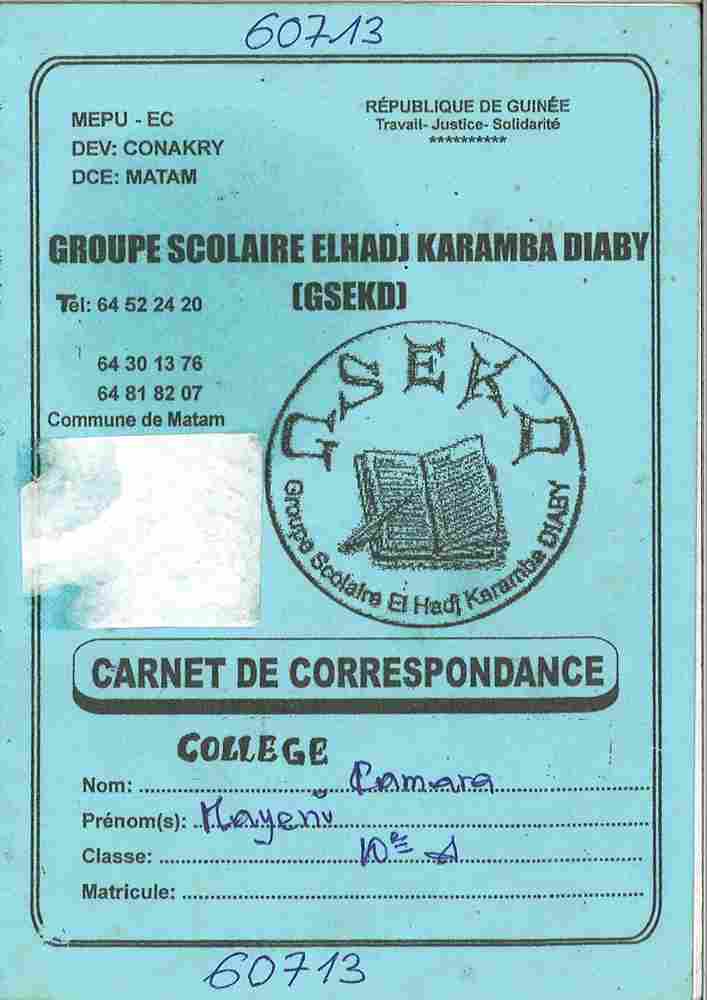 60713
RÉPUBLIQUE DE GUINÉE
Travail- Justice- Solidarité
**********
MEPU - EC
DEV: CONAKRY
DCE: MATAM
GROUPE SCOLAIRE ELHADJ KARAMBA DIABY
(GSEKD)
Tél: 64 52 24 20
64 30 13 76
64 81 82 07
Commune de Matam
GSEKD
Groupe Scolaire El Hadj Karamba DIABY
CARNET DE CORRESPONDANCE
COLLEGE
Nom: Camara
Prénom(s): Mayeni
Classe: 10e A
Matricule:
60713